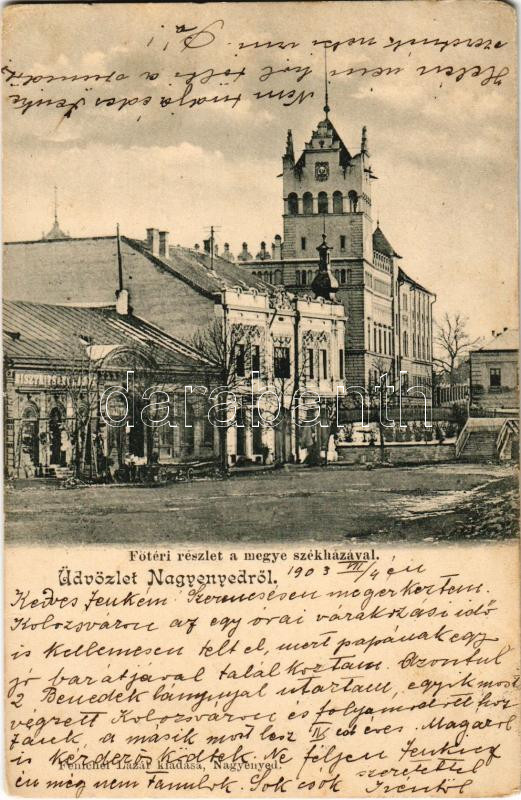 Nem tudja edes Jenke
Helén neém hol
TISZTVISELŐK
darabanth
Főtéri részlet a megye székházával.
Üdvözlet Nagyenyedről. 1903 VII/4 én
Kedves Jenkém! Szerencsésen megérkeztem.
Kolozsváron az egy órai várakozási idő
is kellemesen telt el, mert papának egy
jó barátjával találkoztam. Azontul
2 Benedek lánynyal utaztam, egyik most
végzett Kolozsváron és folyamodott hoz
zánk, a másik most lesz IV ed éves, Magáról
is kérdezősködtek. Ne féljen Jenkicz
én még nem tanulok. Sok csók szeretettel
Irentől
Fenichel Lázár kiadása, Nagyenyed.